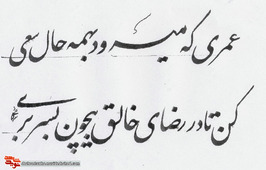 عمری که میرود بهمه حال سعی
کن تا در رضای خالق بیچون بسر بری